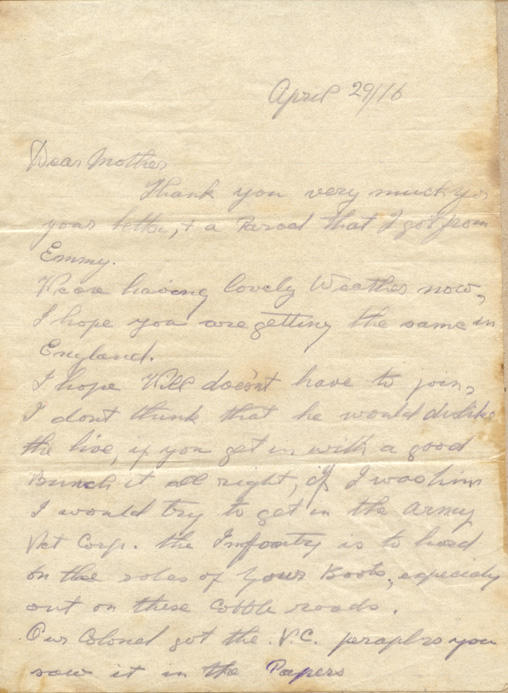 April 29/16
Dear Mother
Thank you very much for
your letter, & a Parcel that I got from
Emmy.
We are having lovely Weather now,
I hope you are getting the same in
England.
I hope Will doesn't have to join,
I dont think that he would dislike
the live, if you get in with a good
Bunch it all right, if I was him
I would try to get in the Army
Vet Corp. the Infantry is to hard
on the soles of your Boots, especialy
out on these Cobble roads.
Our Colonel got the V.C. peraphs you
saw it in the Papers